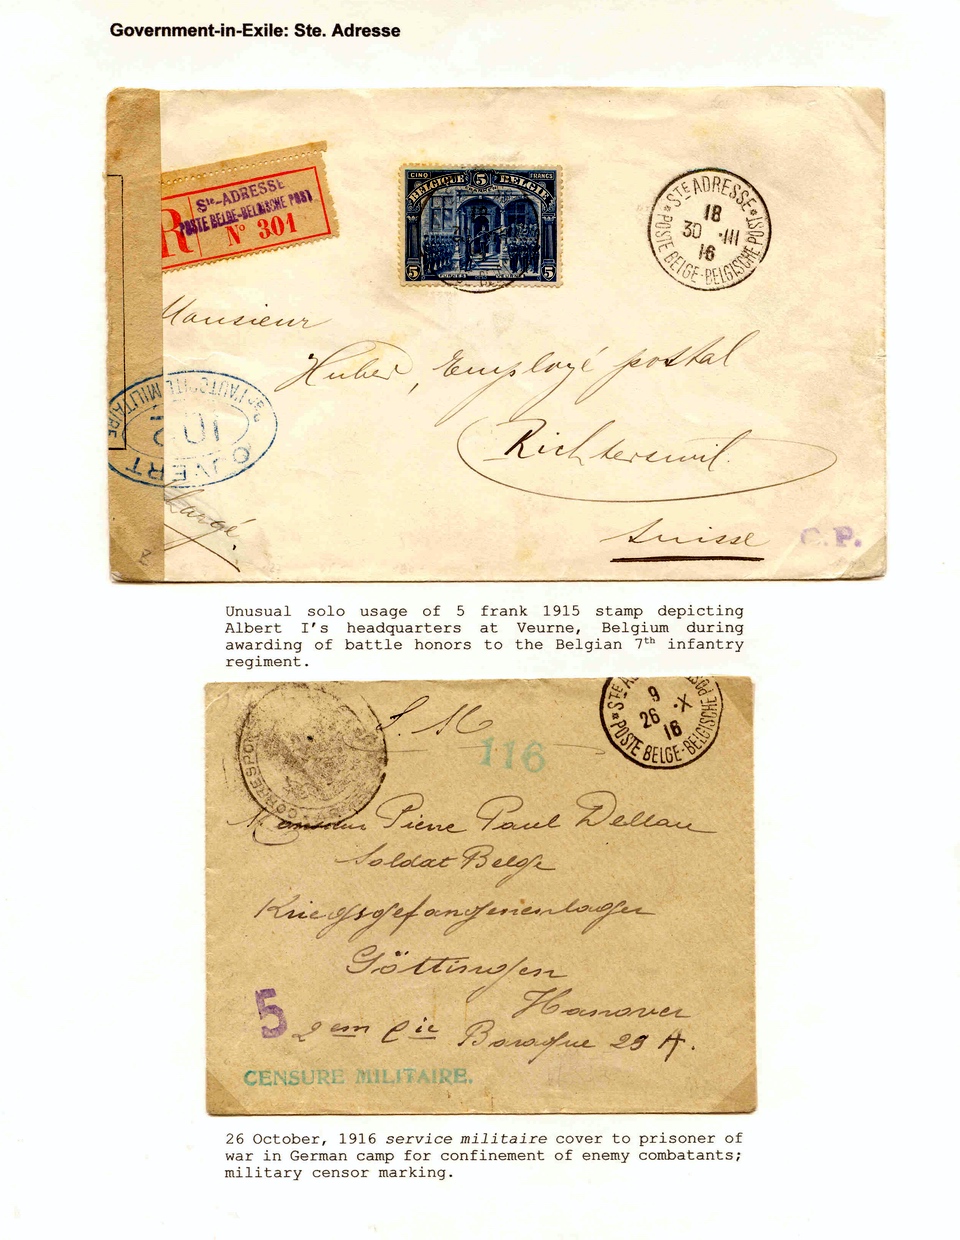 Government-in-Exile: Ste. Adresse
R
Ste-ADRESSE
POSTE BELGE-BELGISCHE POST
N° 301
CINQ 5 FRANCS
BELGIQUE BELGIË
5 FURNES VEURNE 5
* STE ADRESSE *
18
30 ·III
16
POSTE BELGE-BELGISCHE POST
Monsieur
Huber, Employé postal
Richterswil.
Suisse
OUVERT
102
PAR L'AUTORITÉ MILITAIRE
Chargé.
C.P.
Unusual solo usage of 5 frank 1915 stamp depicting
Albert I's headquarters at Veurne, Belgium during
awarding of battle honors to the Belgian 7th infantry
regiment.
S. M
116
9
26 ·X
16
POSTE BELGE-BELGISCHE POST
Monsieur Pierre Paul Dellau
Soldat Belge
Kriegsgefangenenlager
Göttingen
Hanover
5
2em Cie Baraque 29 A.
CENSURE MILITAIRE.
26 October, 1916 service militaire cover to prisoner of
war in German camp for confinement of enemy combatants;
military censor marking.